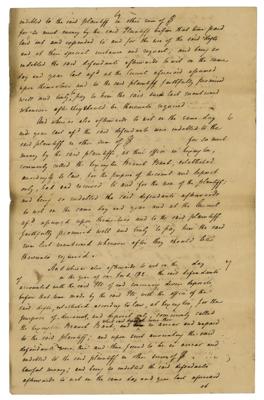 indebted to the said plaintiff in other sum of $
for so much money by the said Plaintiff before that time paid
laid out and expended to and for the use of the said
and at their special instance and request; and being so
indebted the said defendants afterwards to wit on the same
day and year last afsd at the Circuit aforesaid assumed
upon themselves and to the said plaintiff faithfully promised
well and truly to pay to him the said sum last mentioned
whenever after they should be thereunto required
And whereas also afterwards to wit on the same day
and year last afsd the said defendants were indebted to the
said plaintiff in other sum of $ for so much
money by the said plaintiff at their office in Lexington,
commonly called the Lexington Branch Bank, established
accordingly to law for the purposes of discount and deposit
only, had and received to and for the use of the plaintiff;
and being so indebted the said defendants afterwards
to wit on the same day and year and at the Circuit
afsd assumed upon themselves and to the said plaintiff
faithfully promised well and truly to pay him the said
sum last mentioned whenever after they should be
thereunto required
And whereas also afterwards to wit on the day
in the year the said defendants
accounted with the said Plf of and concerning divers deposits
before that time made by the said Plf with the office of the
said established according to law, at Lexington, for the
purposes of discount, and deposit only, commonly called
the Lexington Branch Bank, and in arrear and unpaid
to the said plaintiff; and upon such accounting the said
defendants were then and there found to be in arrear and
indebted to the said plaintiff in other sum of $
lawful money; and being so indebted the said defendants
afterwards to wit on the same day and year last aforesaid
at